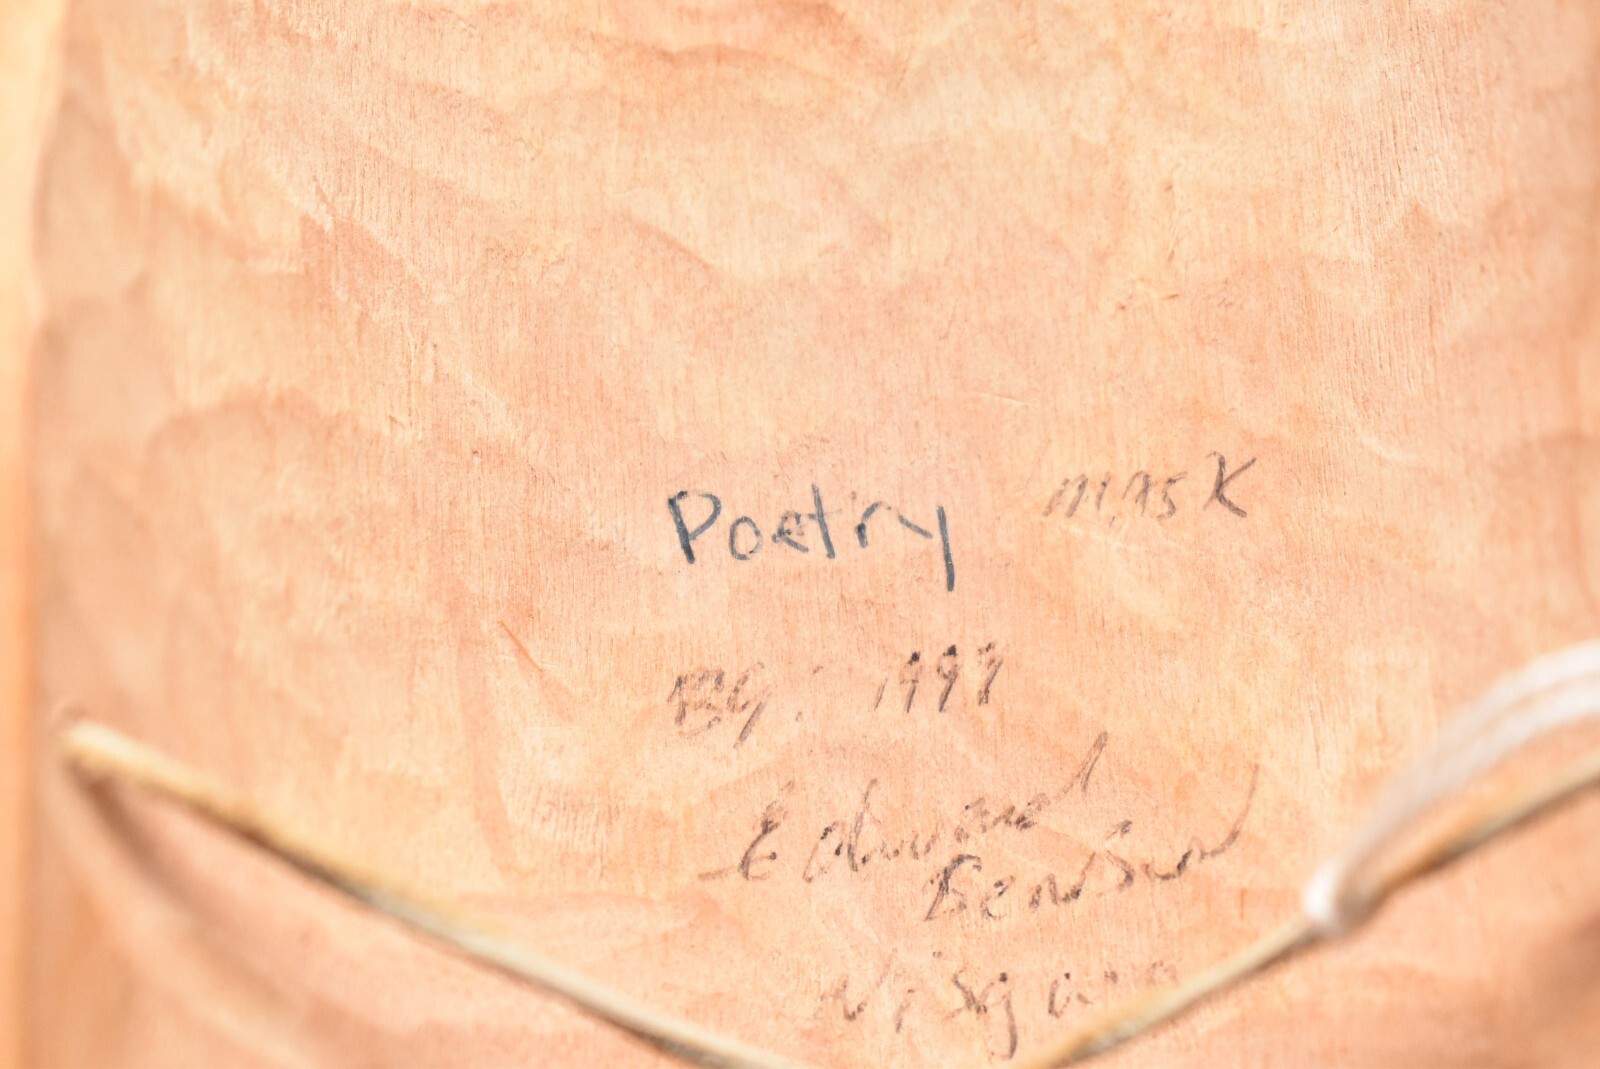 Poetry MASK
By: 1997
Edward
Benson
Nisgaa